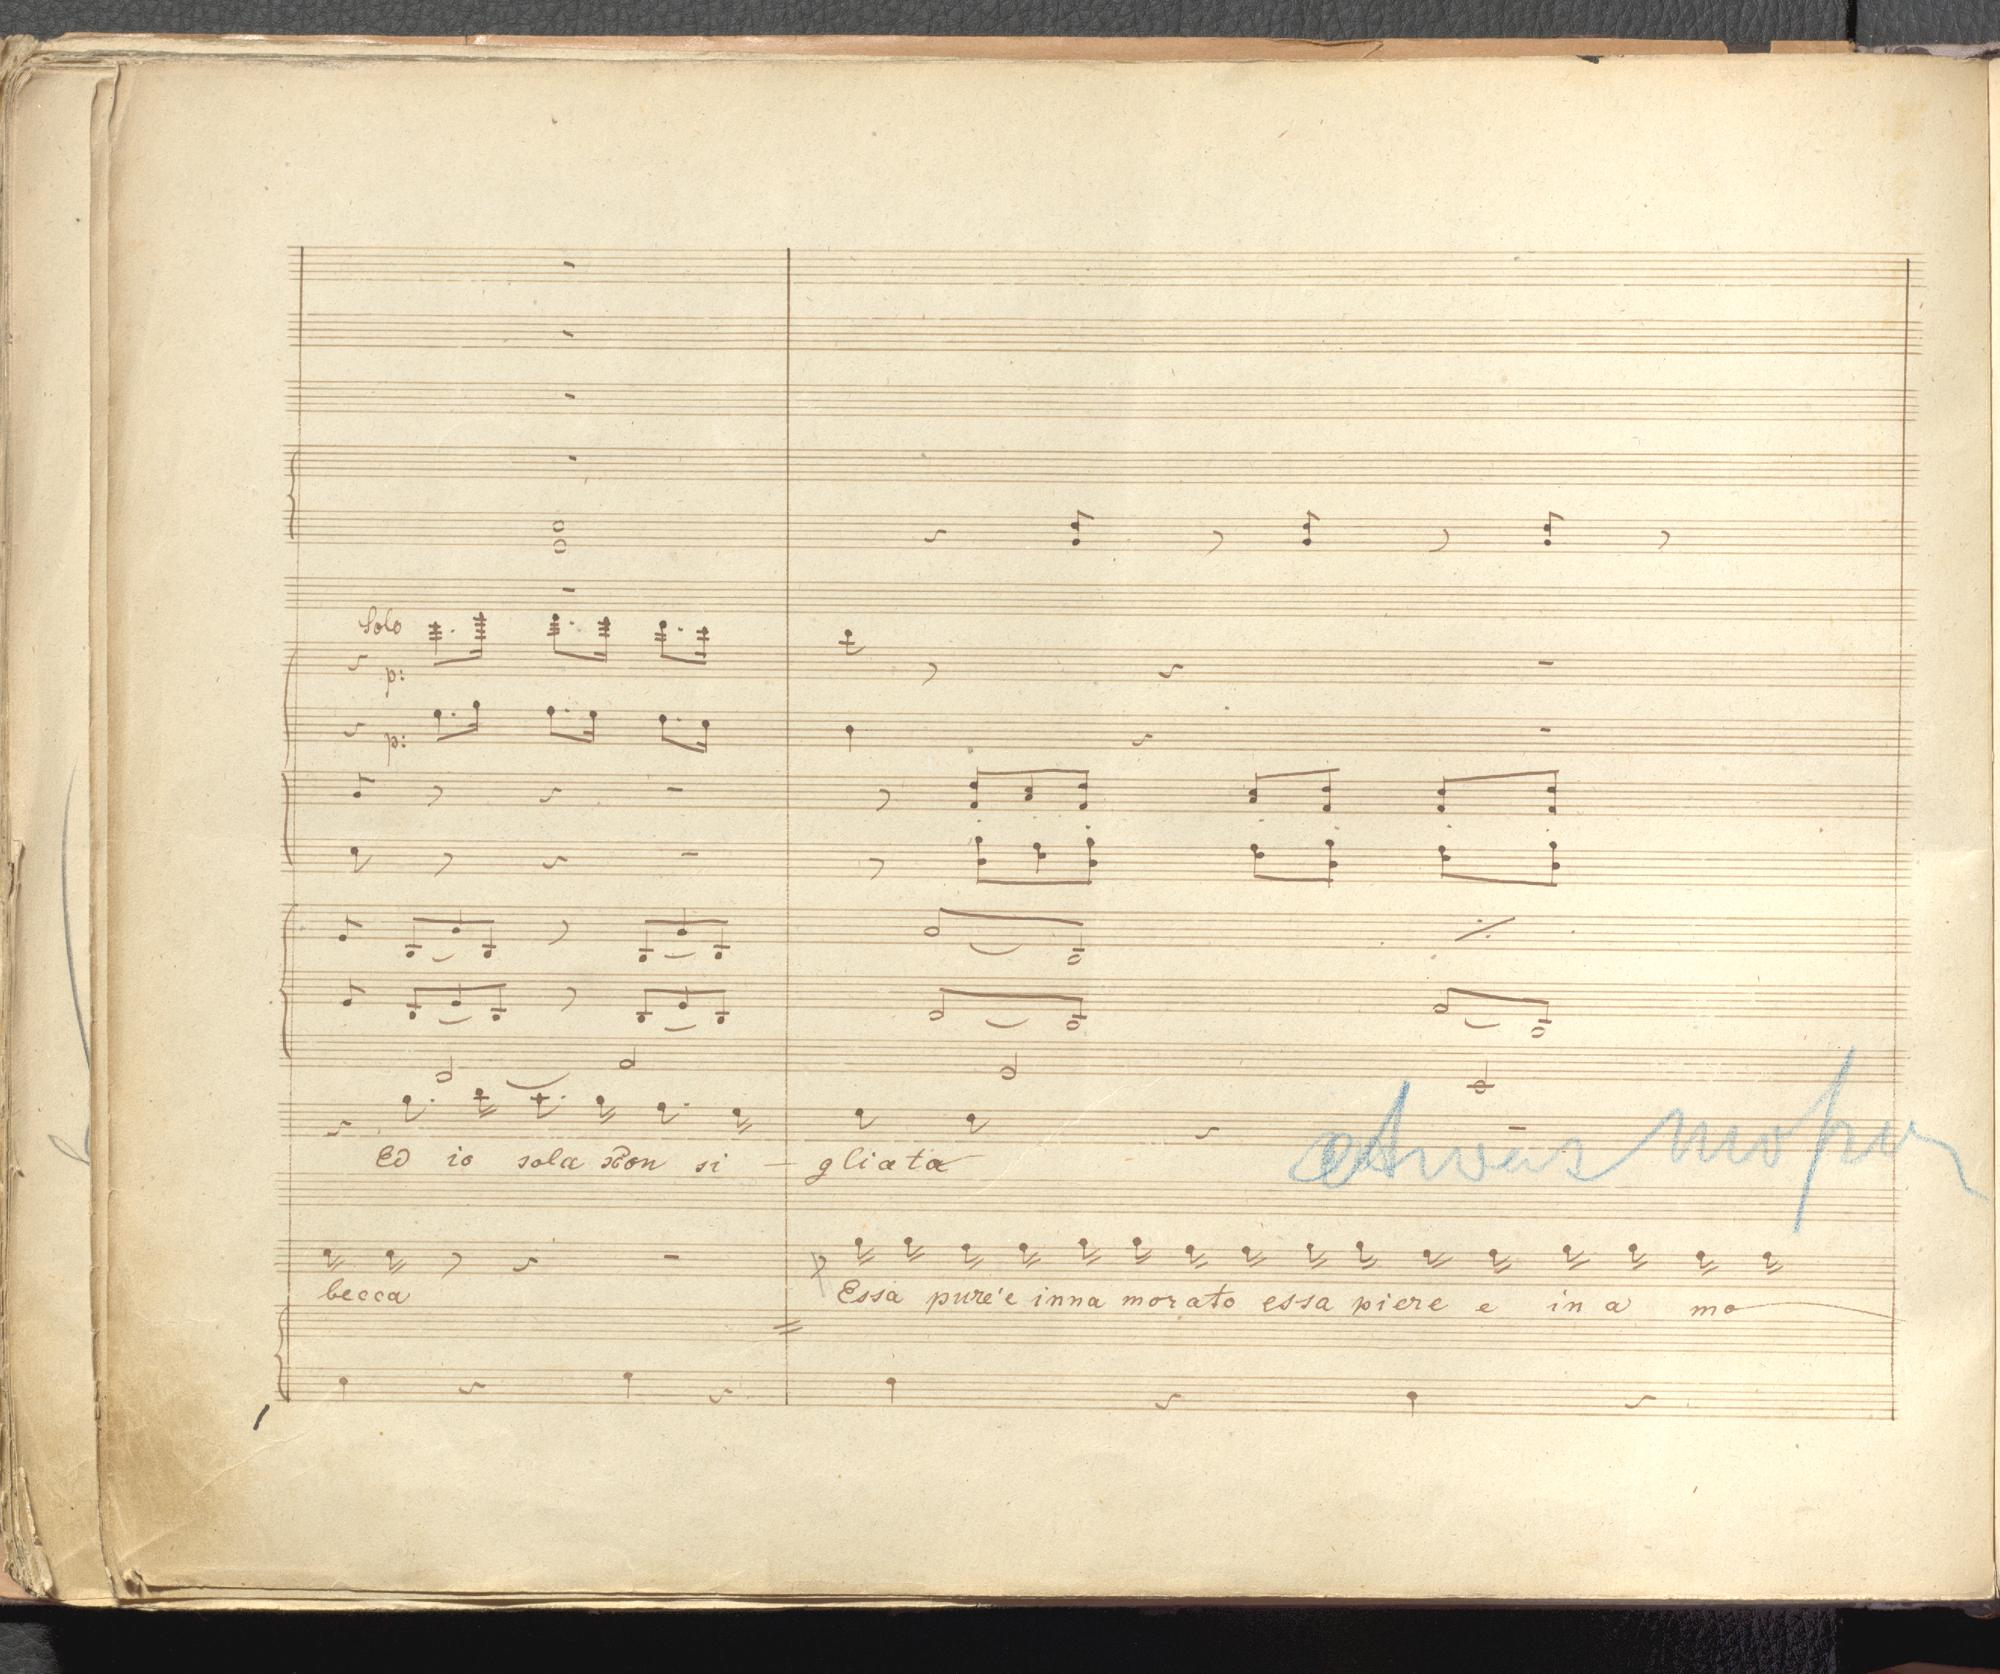 Solo
p:
p:
Ed io sola Con si - gliata
etwas
becca
p
Essa pure'e inna morato essa piere e in a mo